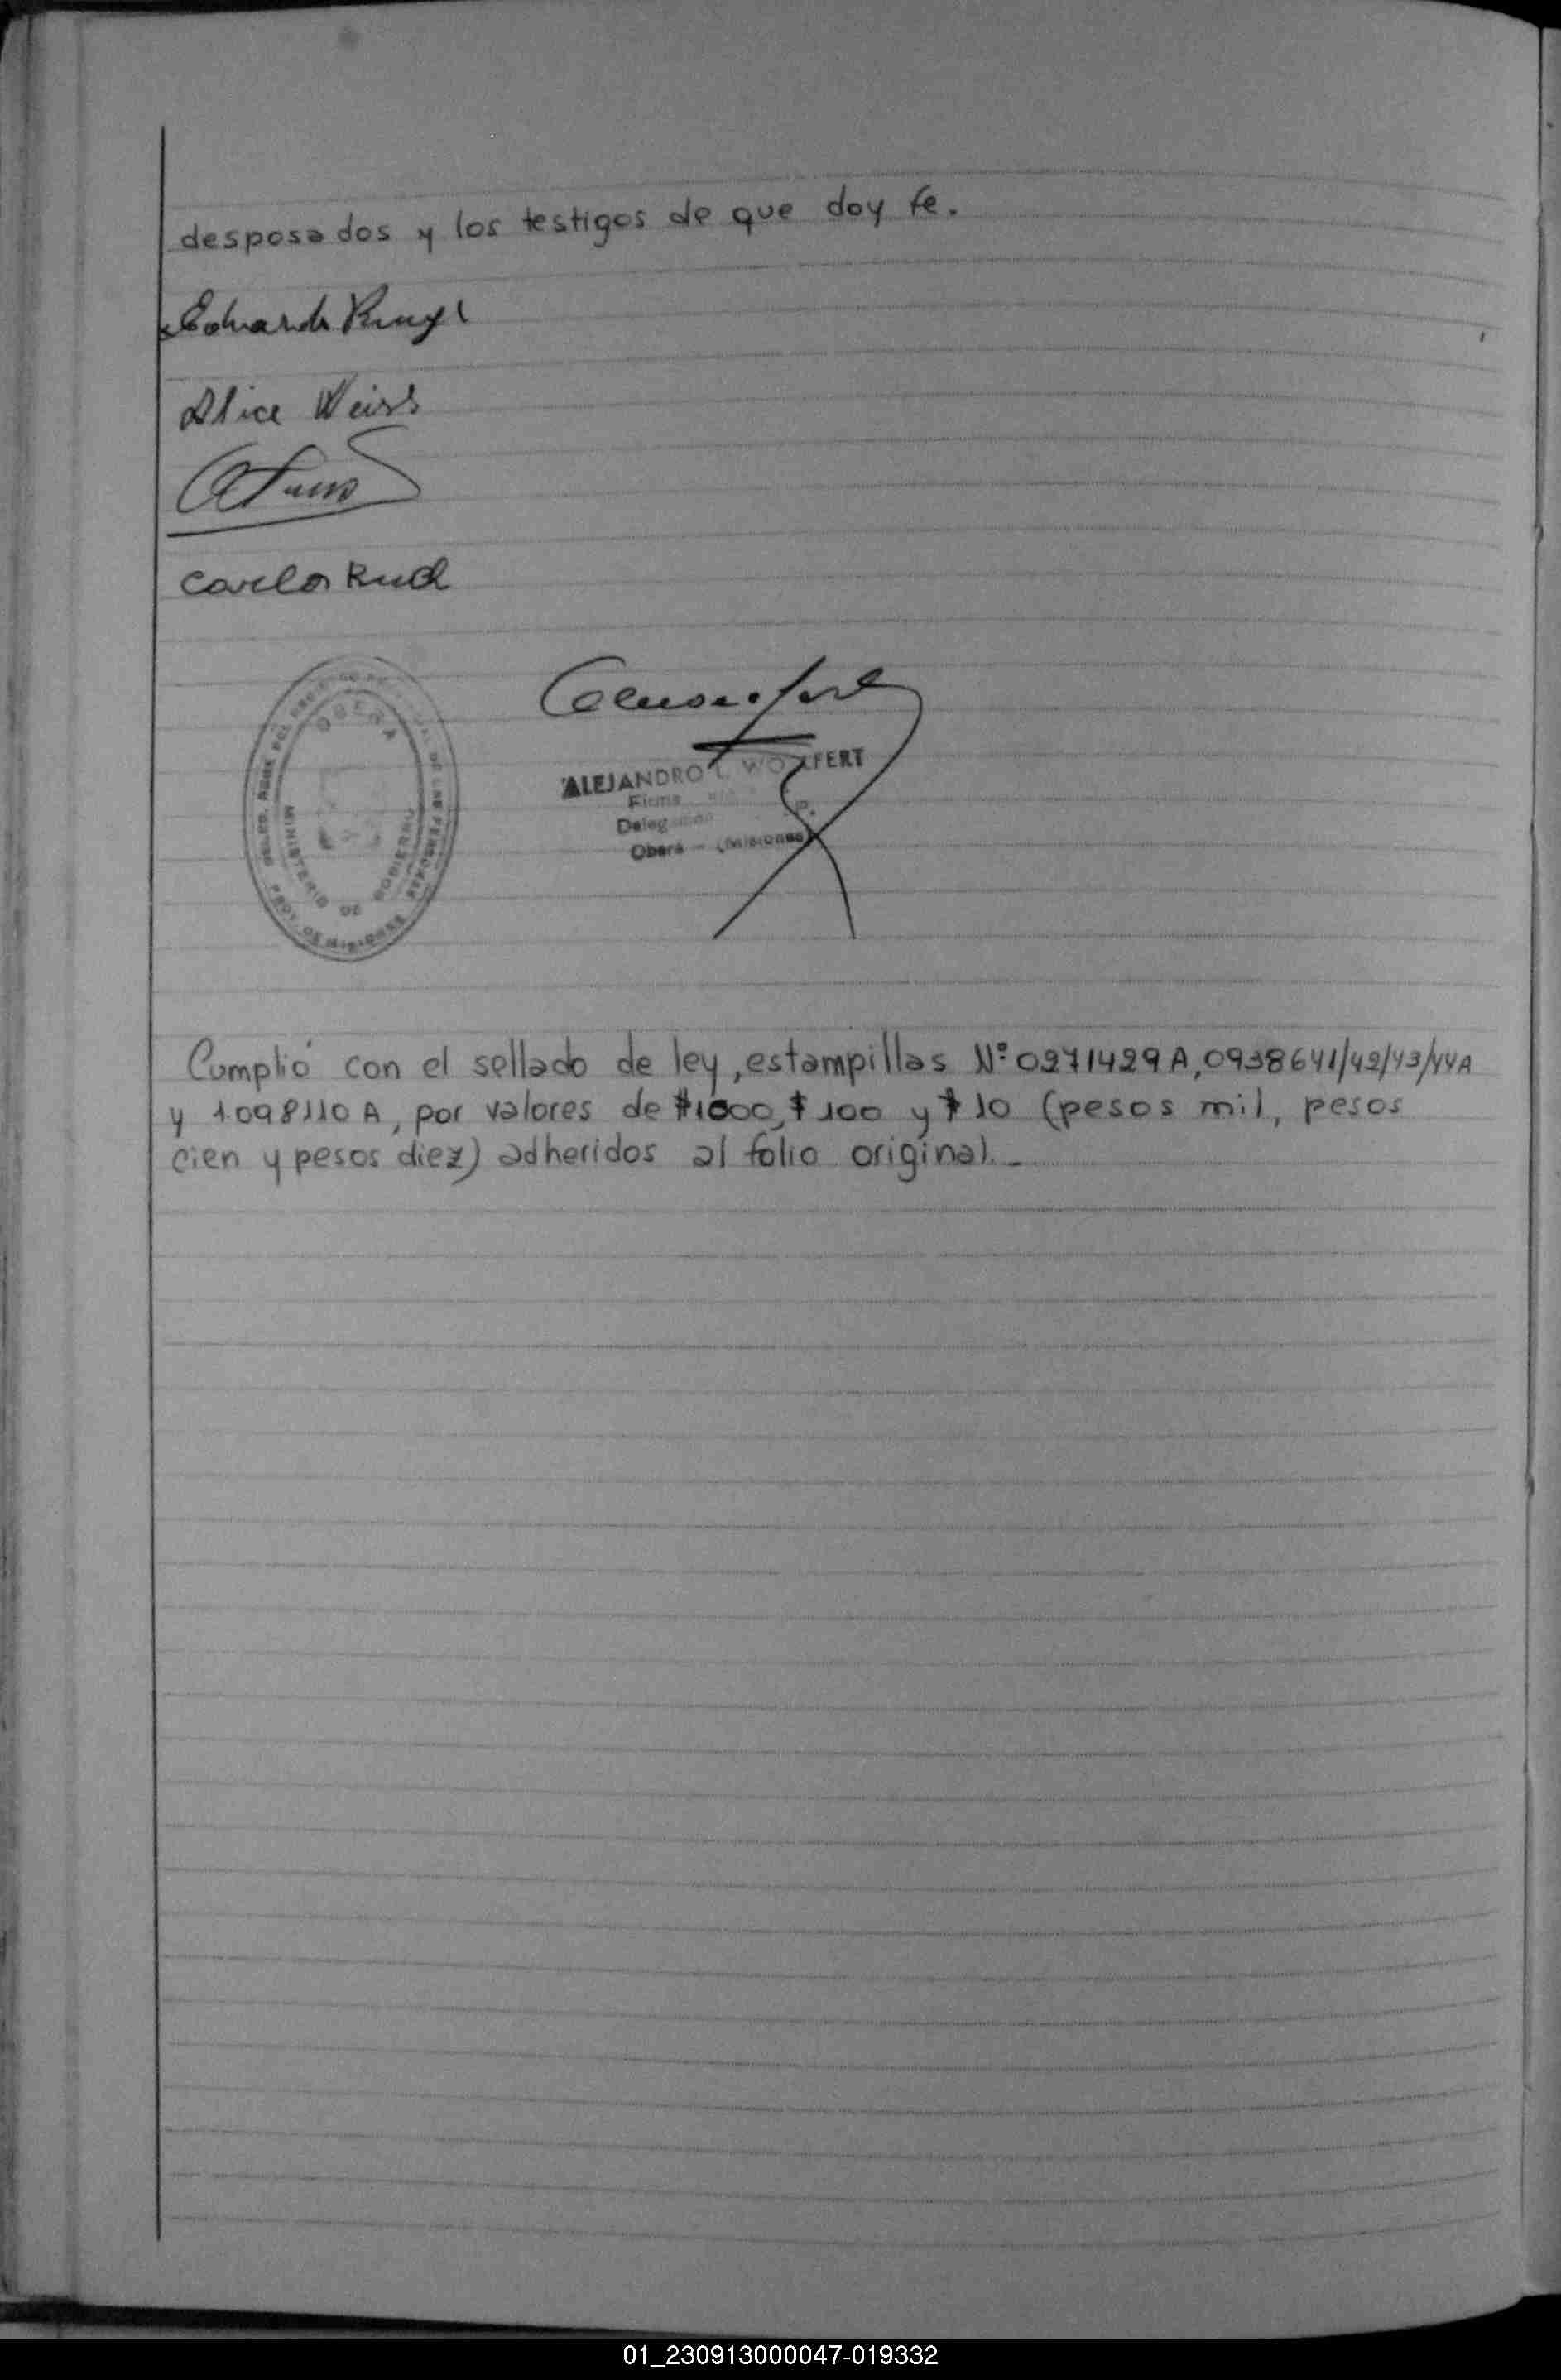 desposados y los testigos de que doy fe.
Eduardo
Alice Weiss
Carlos Ruch
OBERA
MINISTERIO DE GOBIERNO
PROV. DE MISIONES
ALEJANDRO L. WOLFERT
Firma
Oberá - (Misiones)
Cumplió con el sellado de ley, estampillas Nº 0271429 A, 0938641/42/43/44A
y 1098110 A, por valores de $1000, $ 100 y $ 10 (pesos mil, pesos
cien y pesos diez) adheridos al folio original.-
01_230913000047-019332